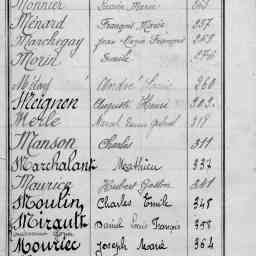 Monnier Marie 205
Ménard François Marie 237
Marchegay Jean Marie François 258
Morin Emile 276
André Louis 260
Meignen Auguste Henri 302
Merle Louis Gabriel 317
Manson Charles 311
Marchalant Mathieu 332
Maurice Hubert Gaston 341
Moulin Charles Emile 348
Mirault Daniel Louis François 358
Mouriec Joseph Marie 364